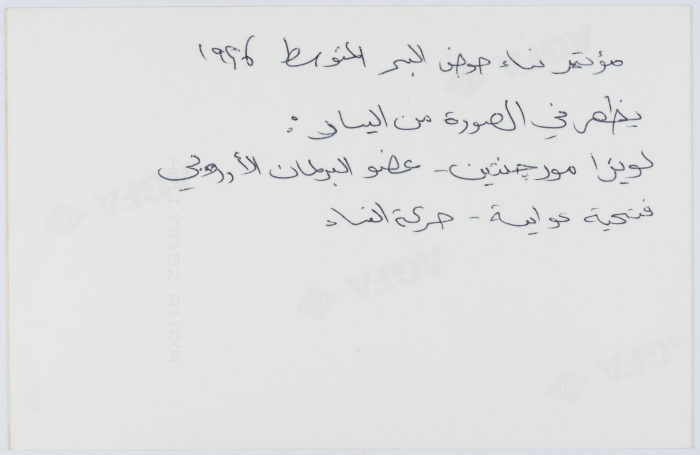 مؤتمر نساء حوض البحر المتوسط ١٩٩٦
يظهر في الصورة من اليسار :
لويزا مورجنتين - عضو البرلمان الأوروبي
فتحية عوايسة - حركة النساء
AGFA
AGFA
AGFA
AGFA